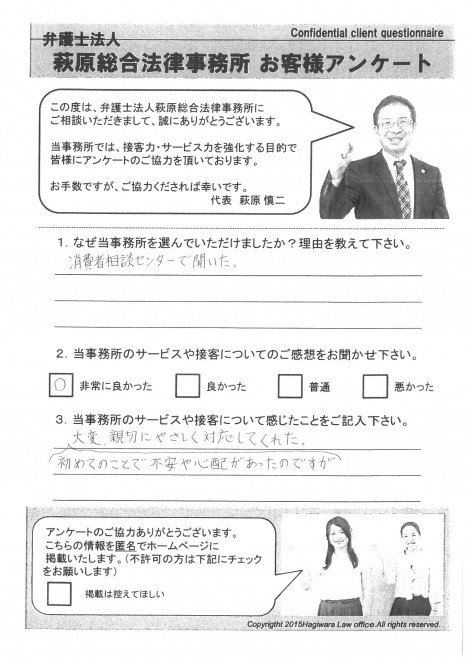 Confidential client questionnaire
弁護士法人
萩原総合法律事務所 お客様アンケート
この度は、弁護士法人萩原総合法律事務所に
ご相談いただきまして、誠にありがとうございます。
当事務所では、接客力・サービス力を強化する目的で
皆様にアンケートのご協力を頂いております。
お手数ですが、ご協力くだされば幸いです。
代表 萩原 慎二
1. なぜ当事務所を選んでいただけましたか？理由を教えて下さい。
消費者相談センターで聞いた.
2. 当事務所のサービスや接客についてのご感想をお聞かせ下さい。
○ 非常に良かった 良かった 普通 悪かった
3. 当事務所のサービスや接客について感じたことをご記入下さい。
大変 親切にやさしく対応してくれた.
初めてのことで不安や心配があったのですが
アンケートのご協力ありがとうございます。
こちらの情報を匿名でホームページに
掲載いたします。（不許可の方は下記にチェック
をお願いします）
掲載は控えてほしい
Copyright 2015Hagiwara Law office.All rights reserved.